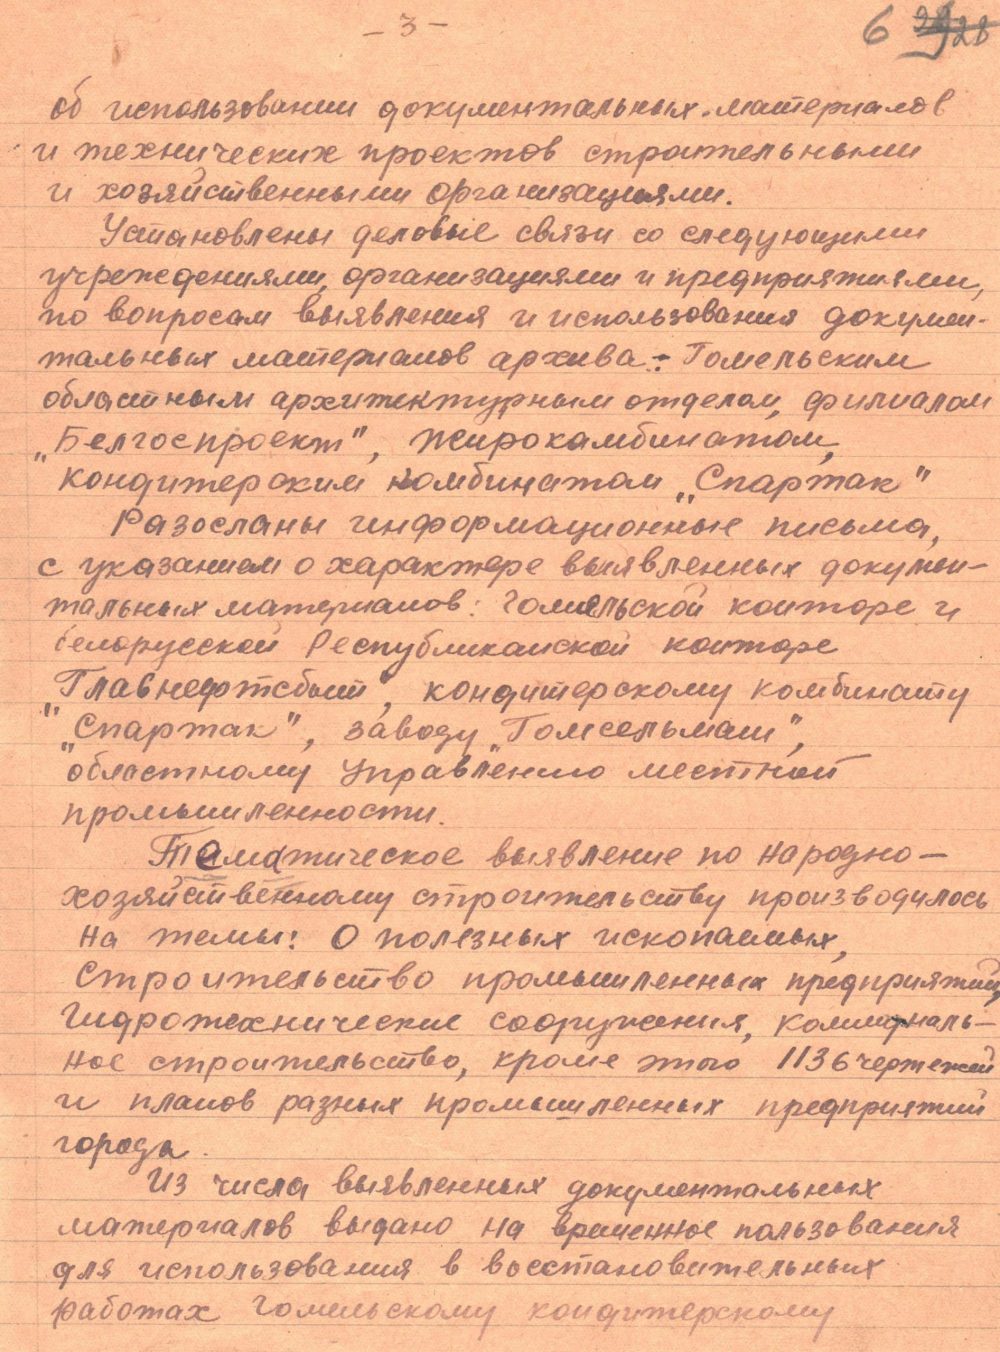 - 3 -
6 28
об использовании документальных материалов
и технических проектов строительными
и хозяйственными организациями.
Установлены деловые связи со следующими
учреждениями, организациями и предприятиями,
по вопросам выявления и использования докумен-
тальных материалов архива: Гомельским
областным архитектурным отделом, филиалом
„Белгоспроект", Жирокомбинатом,
кондитерским комбинатом „Спартак"
Разосланы информационные письма,
с указанием о характере выявленных докумен-
тальных материалов: Гомельской конторе и
белорусской Республиканской конторе
„Главнефтсбыт", кондитерскому комбинату
„Спартак", заводу „Гомсельмаш",
областному Управлению местной
промышленности.
Тематическое выявление по народно-
хозяйственному строительству производилось
на темы: О полезных ископаемых,
Строительство промышленных предприятий,
Гидротехнические сооружения, Коммуналь-
ное строительство, кроме этого 1136 чертежей
и планов разных промышленных предприятий
города.
Из числа выявленных документальных
материалов выдано на временное пользования
для использования в восстановительных
работах Гомельскому кондитерскому